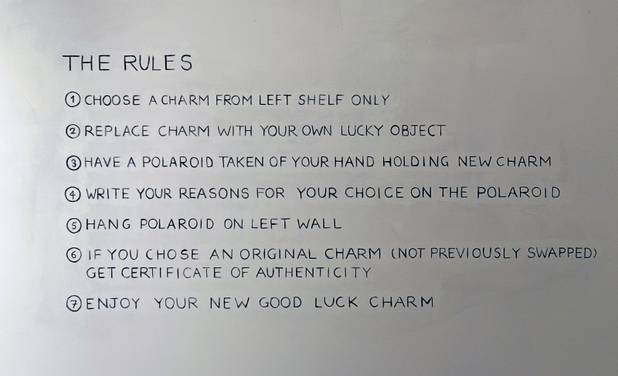 THE RULES
① CHOOSE A CHARM FROM LEFT SHELF ONLY
② REPLACE CHARM WITH YOUR OWN LUCKY OBJECT
③ HAVE A POLAROID TAKEN OF YOUR HAND HOLDING NEW CHARM
④ WRITE YOUR REASONS FOR YOUR CHOICE ON THE POLAROID
⑤ HANG POLAROID ON LEFT WALL
⑥ IF YOU CHOSE AN ORIGINAL CHARM (NOT PREVIOUSLY SWAPPED)
GET CERTIFICATE OF AUTHENTICITY
⑦ ENJOY YOUR NEW GOOD LUCK CHARM